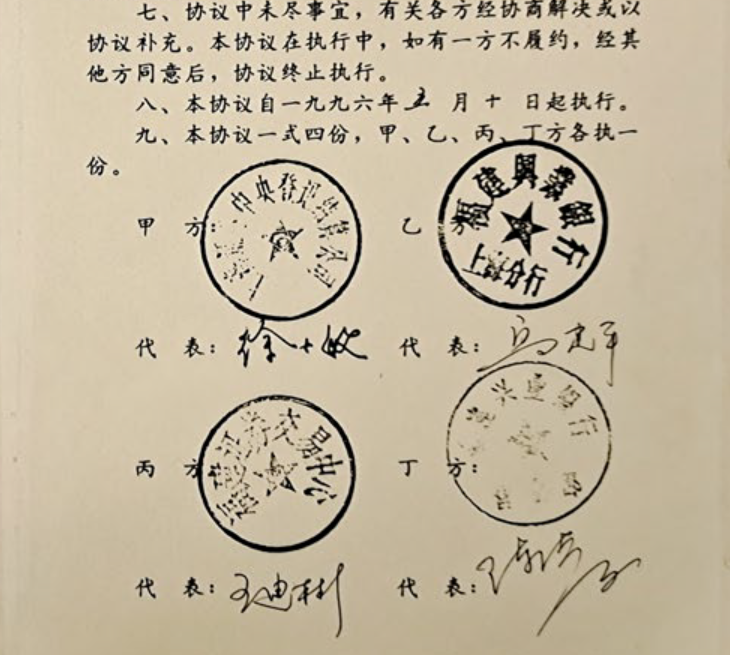 七、协议中未尽事宜，有关各方经协商解决或以
协议补充。本协议在执行中，如有一方不履约，经其
他方同意后，协议终止执行。
八、本协议自一九九六年五月十日起执行。
九、本协议一式四份，甲、乙、丙、丁方各执一
份。
甲 方：
中央登记结算公司
乙
福建興業銀行
上海分行
代 表：徐士敏
代 表：
丙 方
福建证券交易中心
丁 方：
兴业银行
代 表：王迪彬
代 表：